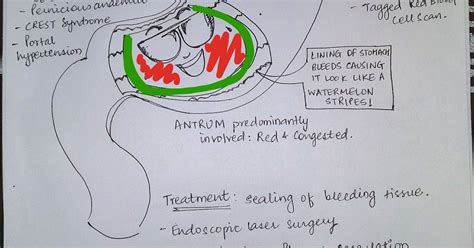 Pernicious anaemia
- CREST Syndrome
- Portal
hypertension
- Tagged Red Blood
Cell Scan.
LINING OF STOMACH
BLEEDS CAUSING
IT LOOK LIKE A
WATERMELON
STRIPES!
ANTRUM predominantly
involved: Red & Congested.
Treatment: Sealing of bleeding tissue.
- Endoscopic laser surgery